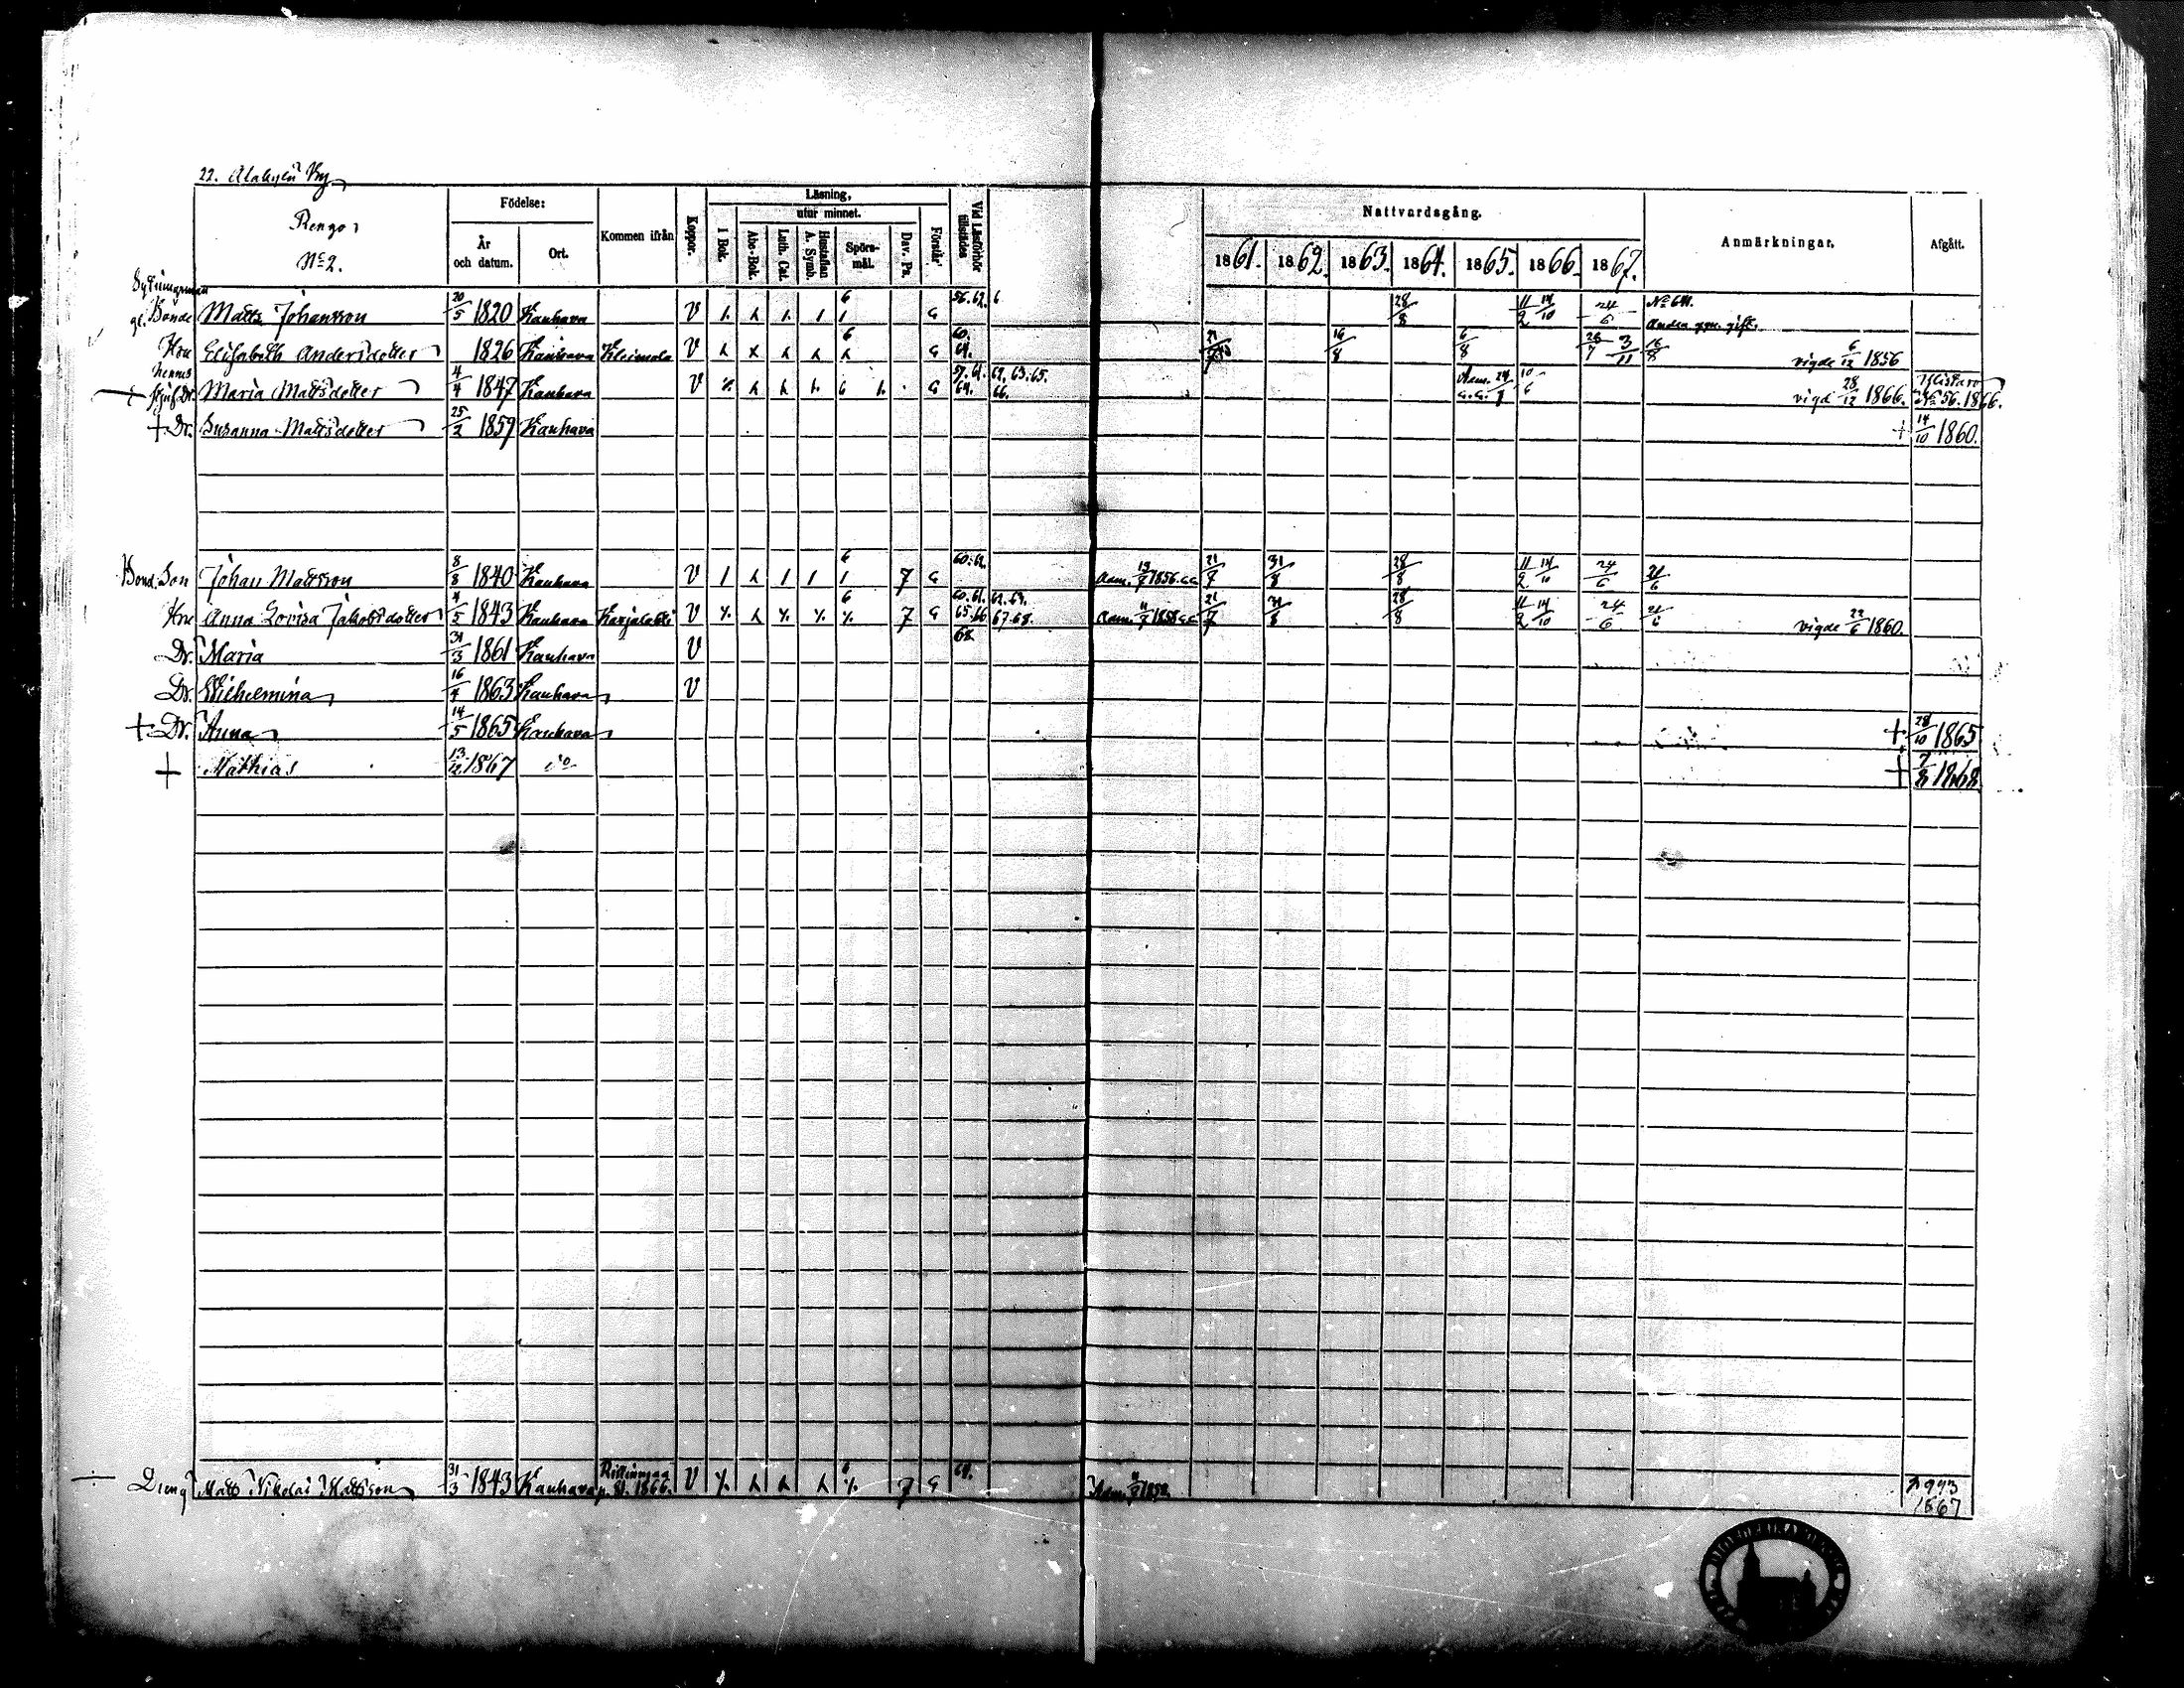 22. Alakylä By
Rengo
No 2.
Födelse:
År och datum.
Ort.
Kommen ifrån
Koppor.
Läsning,
utur minnet.
I Bok.
Abc-Bok.
Luth. Cat.
Hustaflan A. Symb.
Spörs-mål.
Dav. Ps.
Förstår
Vid Läsförhör tillstädes
Nattvardsgång.
1861. 1862. 1863. 1864. 1865. 1866. 1867.
Anmärkningar.
Afgått.
Sytningsman
gl. Bonde Matts Johansson 20/5 1820 Kauhava V 6 G 56. 62. 6 28/8 11/2 14/10 24/6 No 641.
Andra ggn. gift.
Hru Elisabeth Andersdotter 1826 Kauhava Kleimola V 6 G 60. 64. 16/8 6/8 28/7 3/11 16/8 vigde 6/12 1856
Hennes
Maria Mattsdotter 4/4 1847 Kauhava V G 57. 61. 62. 63. 65. 64. 66. Adm. 24 10/6 vigd 28/12 1866. Ylistaro No 56. 1866.
+ Dr. Susanna Mattsdotter 25/2 1859 Kauhava + 14/10 1860.
Bond. Son Johan Mattsson 8/8 1840 Kauhava V 6 7 G 60. 62. Adm. 1856. 21/7 31/8 28/8 11/2 14/10 24/6 21/6
Hru Anna Lovisa Jakobsdotter 4/5 1843 Kauhava Karjalahti V 6 7 G 60. 61. 62. 64. 65. 66 67. 68. Adm. 1858 21/7 31/8 28/8 11/2 14/10 24/6 21/6 vigde 22/6 1860.
Dr. Maria 31/3 1861 Kauhava V 68.
Dr. Wilhelmina 16/4 1863 Kauhava V
+ Dr. Anna 14/5 1865 Kauhava + 28/10 1865
+ Mathias 13/12 1867 do + 7/8 1868
Dreng Matts Nikolai Mattsson 31/3 1843 Kauhava p. 81. 1866. V 6 7 G 64. Adm. 1858. 993
1867